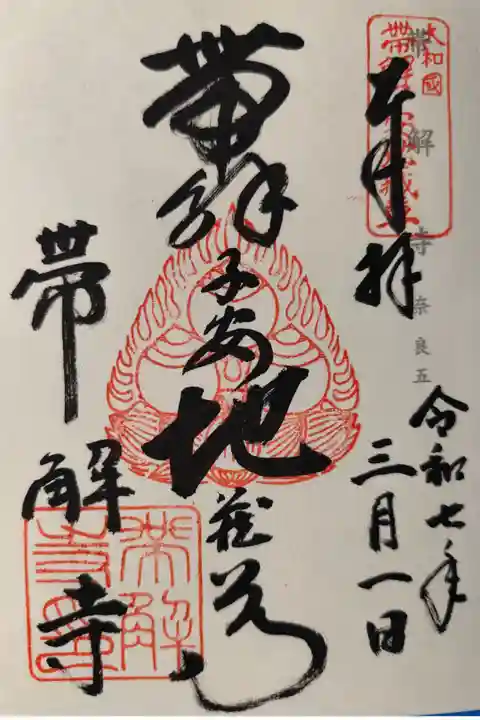 奉拝
令和七年
三月一日
大和國
帯解子安地蔵尊
帯解寺
奈良五
帯解子安地蔵尊
帯解寺
帯解寺印